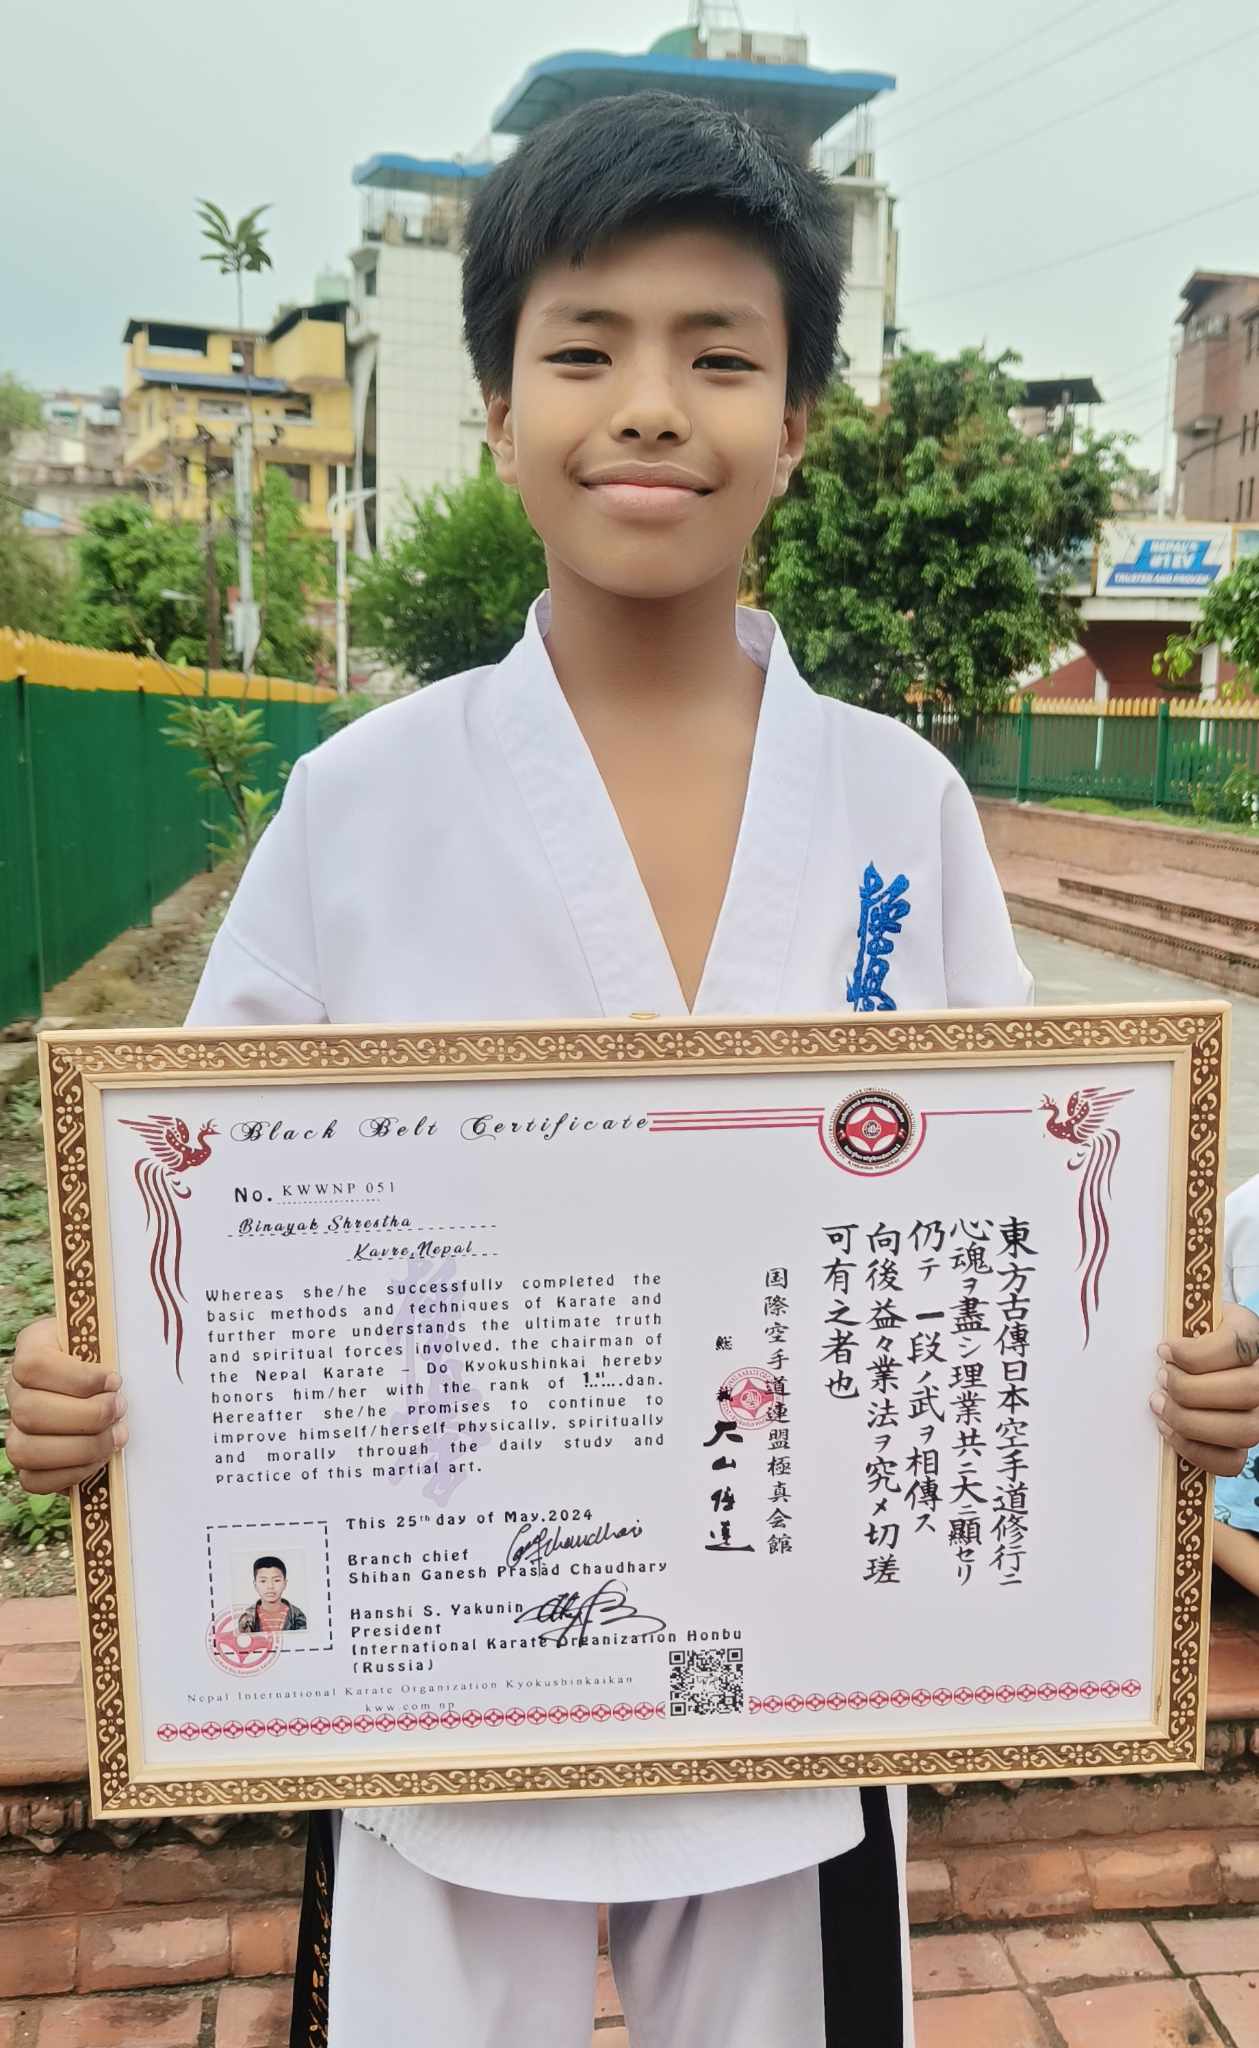 NEPAL'S
#1 EV
TRUSTED AND PROVEN
極真
Black Belt Certificate
No. KWWNP 051
Binayak Shrestha
Kavre, Nepal
Whereas she/he successfully completed the
basic methods and techniques of Karate and
further more understands the ultimate truth
and spiritual forces involved. the chairman of
the Nepal Karate - Do Kyokushinkai hereby
honors him/her with the rank of 1st dan.
Hereafter she/he promises to continue to
improve himself/herself physically, spiritually
and morally through the daily study and
practice of this martial art.
This 25th day of May,2024
Branch chief
Shihan Ganesh Prasad Chaudhary
Hanshi S. Yakunin
President
International Karate Organization Honbu
(Russia)
Nepal International Karate Organization Kyokushinkaikan
kww.com.np
東方古傳日本空手道修行ニ
心魂ヲ盡シ理業共ニ大ニ顯セリ
仍テ一段ノ武ヲ相傳ス
向後益々業法ヲ究メ切瑳
可有之者也
国際空手道連盟極真会館
総裁 大山倍達